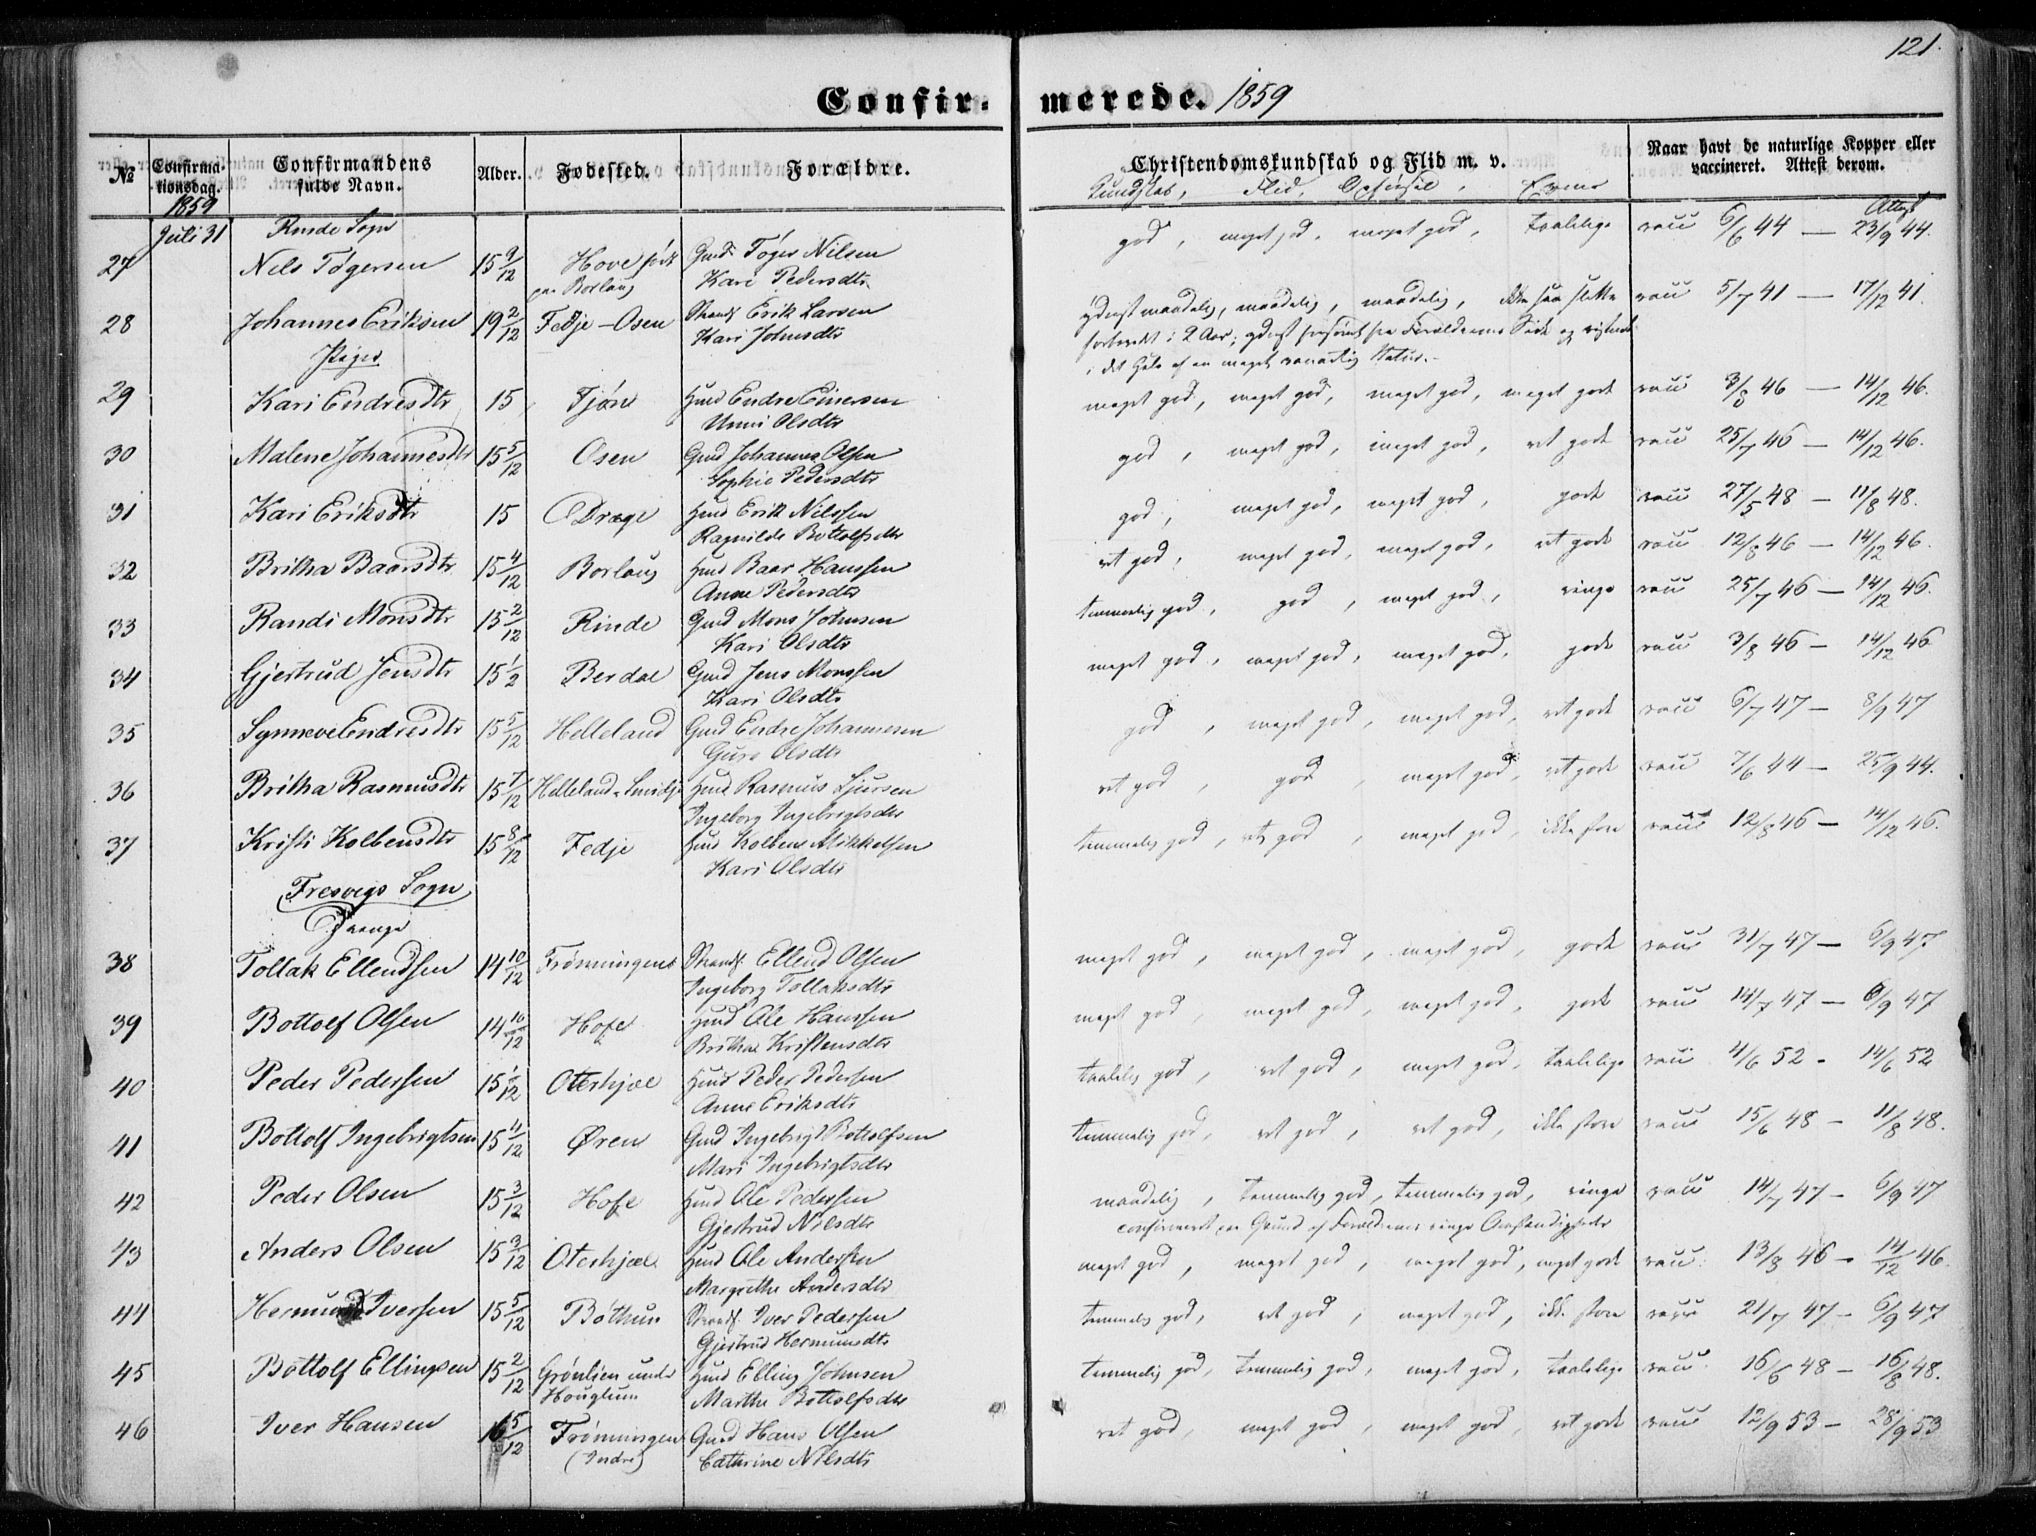 121.
Confirmerede. 1859
№ Confirmationsdag. Confirmandens fulde Navn. Alder. Fødested. Forældre. Christendomskundskab og Flid m. v. Naar havt de naturlige Kopper eller vaccineret. Attest derom.
1859 Kundskab, Flid, Opførsel, Evner
Juli 31 Rinde Sogn Attest
27 Nels Tøgersen 15 9/12 Hove født paa Borlaug Gmd Tøger Nilsen god, meget god, meget god, taalelige vacc 6/6 44 — 23/9 44.
Kari Pedersdtr
28 Johannes Eriksen 19 2/12 Fedje-Osen Strands Erik Larsen yderst maadelig, maadelig, maadelig, ikke saa slette vacc 5/7 41 — 17/12 41.
Kari Johnsdtr forberedt i 2 Aar; yderst forsømt fra Forældrenes Side og
i det Hele af en meget vanartig Natur.
Piger
29 Kari Endresdtr 15 Tjøre Huusmd Endre Einersen meget god, meget god, meget god, meget gode vacc 3/8 46 — 14/12 46.
Unni Olsdtr
30 Malene Johannesdtr 15 5/12 Osen Gmd Johannes Olsen god, meget god, meget god, ret gode vacc 25/7 46 — 14/12 46.
Sophie Pedersdtr
31 Kari Eriksdtr 15 Dræge Hmd Erik Nilssen god, meget god, meget god, gode vacc 27/5 48 — 11/8 48.
Ragnilde Bottolfsdtr
32 Britha Baarsdtr 15 4/12 Borlaug Hmd Baar Hanssen ret god, meget god, meget god, ret gode vacc 12/8 46 — 14/12 46.
Anne Pedersdtr
33 Randi Monsdtr 15 2/12 Rinde Gmd Mons Johnsen temmelig god, god, meget god, ringe vacc 25/7 46 — 14/12 46.
Kari Olsdtr
34 Gjertrud Jensdtr 15 1/2 Berdal Gmd Jens Monssen meget god, meget god, meget god, gode vacc 3/8 46 — 14/12 46
Kari Olsdtr
35 Synneve Endresdtr 15 5/12 Helleland Gmd Endre Johannesen god, meget god, meget god, ret gode vacc 6/7 47 — 8/9 47
Guro Olsdtr
36 Britha Rasmusdtr 15 7/12 Helleland Hmd Rasmus Sjursen ret god, god, meget god, ret gode vacc 7/6 44 — 25/9 44.
Ingeborg Ingebrigtsdtr
37 Kristi Kolbensdtr 15 8/12 Fedje Hmd Kolben Mikkelsen temmelig god, ret god, meget god, ikke store vacc 12/8 46 — 14/12 46.
Kari Olsdtr
Fresvigs Sogn
Drenge
38 Tollak Ellendsen 14 10/12 Frønningen Strands. Ellend Olsen meget god, meget god, meget god, gode vacc 31/7 47 — 6/9 47
Ingeborg Tollaksdtr
39 Bottolf Olsen 14 10/12 Hofe Hmd Ole Hanssen meget god, meget god, meget god, gode vacc 14/7 47 — 6/9 47
Britha Kristensdtr
40 Peder Pedersen 15 1/12 Oterhjæl Hmd Peder Pedersen taalelig god, ret god, meget god, taalelige vacc 4/6 52 - 14/6 52
Anne Eriksdtr
41 Bottolf Ingebrigtsen 15 4/12 Øren Gmd Ingebrigt Bottolfsen temmelig god, ret god, ret god, ikke store vacc 15/6 48 - 11/8 48.
Mari Ingebrigtsdtr
42 Peder Olsen 15 3/12 Hofe Hmd Ole Pedersen maadelig, temmelig god, temmelig god, ringe vacc 14/7 47 - 6/9 47
Gjertrud Nilsdtr confirmeret paa Grund af Forældrenes ringe Omstændigheder
43 Anders Olsen 15 3/12 Oterhjæl Hmd Ole Andersen meget god, meget god, meget god, meget gode vacc. 13/8 46 - 14/12 46.
Margrethe Andersdtr
44 Hermund Iversen 15 5/12 Bøthun Strands. Iver Pedersen temmelig god, ret god, meget god, ikke store vacc 21/7 47 - 6/9 47
Gjertrud Hermundsdtr
45 Bottolf Ellingsen 15 2/12 Grønlien under Houglum Hmd Elling Johnsen temmelig god, temmelig god, meget god, taalelige vacc. 16/6 48 - 16/8 48.
Marthe Bottolfsdtr
46 Iver Hansen 16 5/12 Frønningen (Indre) Gmd Hans Olsen ret god, meget god, meget god, ret gode vacc 12/9 53 - 28/9 53
Cathrine Nilsdtr